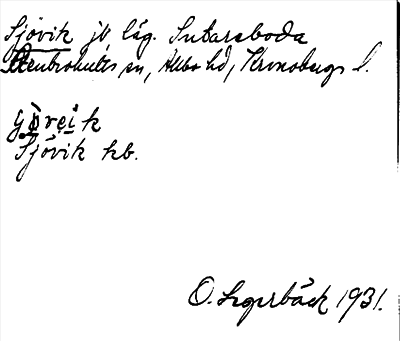 Sjövik jb läg. Sutareboda
Stenbrohults sn, Allbo hd, Kronobergs l.
Sjövik kb.
O. Segerbäck 1931.